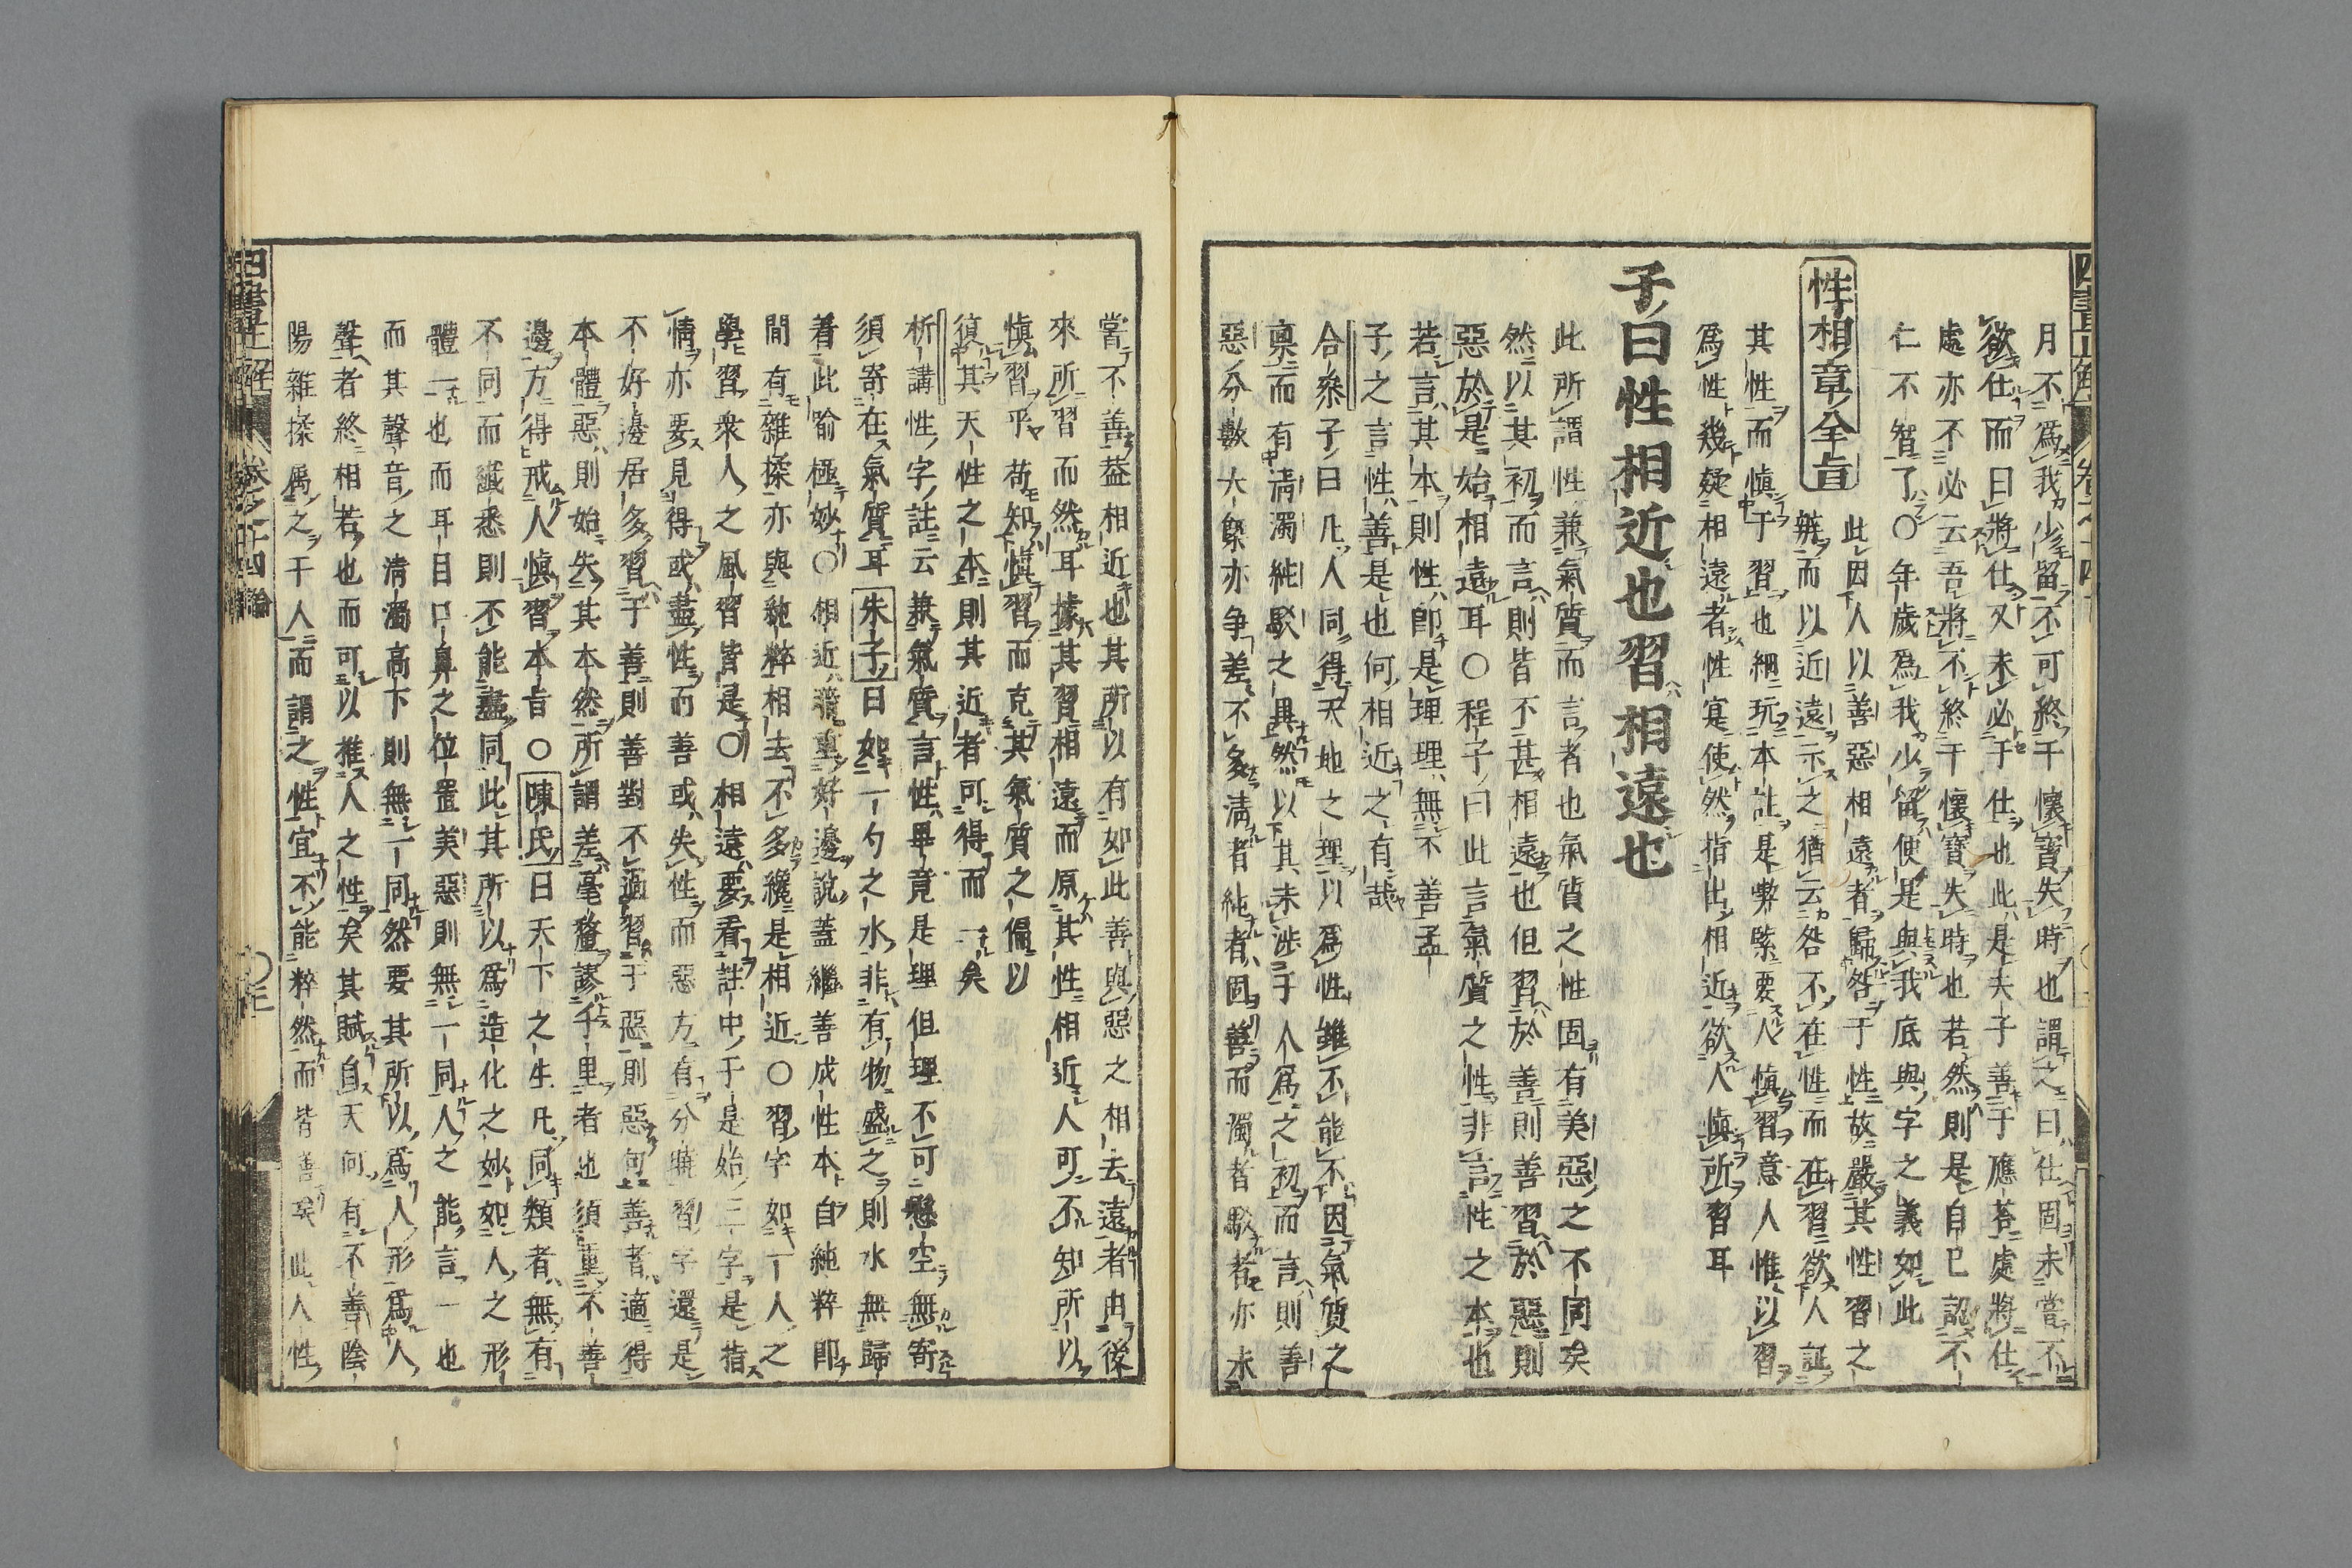 月不爲我少留不可終于懷寶失時也謂之曰仕固未嘗不
欲仕而曰將仕又未必于仕也此是夫子善于應荅處將仕
處亦不必云吾將不終于懷寶失時也若然則是自已認不
仁不智了〇年歲爲我少留便是與我底與字之義如此
性相章全旨
此因人以善惡相遠者歸咎于性故嚴其性習之
辨而以近遠示之猶云咎不在性而在習欲人謹
其性而慎于習也細玩本註是嘆緊要人慎習意人惟以習
爲性幾疑相遠者性寔使然指出相近欲人慎所習耳
子曰性相近也習相遠也
此所謂性兼氣質而言者也氣質之性固有美惡之不同矣
然以其初而言則皆不甚相遠也但習於善則善習於惡則
惡於是始相遠耳〇程子曰此言氣質之性非言性之本也
若言其本則性即是理理無不善孟
子之言性善是也何相近之有哉
合叅子曰凡人同得天地之理以爲性雖不能不因氣質之
稟而有淸濁純駁之異然以其未涉于人爲之初而言則善
惡分數大槩亦爭差不多淸者純者固善而濁者駁者亦未
嘗不善葢相近也其所以有如此善與惡之相去遠者由後
來所習而然耳據其習相遠而原其性相近人可不知所以
愼習乎苟知慎習而克其氣質之偏以
復其天性之本則其近者可得而一矣
析講性字註云兼氣質言性畢竟是理但理不可懸空無寄
須寄在氣質耳朱子曰如一勺之水非有物盛之則水無歸
着此喻極妙〇相近猶重好邊說蓋繼善成性本自純粹即
間有雜揉亦與純粹相去不多纔是相近〇習字如一人之
學習衆人之風習皆是〇相遠要看註中于是始三字是指
情亦要見得或盡性而善或失性而惡方有分曉習字還是
不好邊居多習于善則善對不過習于惡則惡何善者適得
本體惡則始失其本然所謂差毫釐謬千里者也須重不善
邊方得戒人愼習本旨〇陳氏曰天下之生凡同類者無有
不同而譏悉則不能盡同此其所以爲造化之妙如人之形
體一也而耳目口鼻之位置美惡則無一同人之能言一也
而其聲音之淸濁高下則無一同然要其所以爲人形爲人
聲者終相若也而可以推人之性矣其賦自天何有不善陰
陽雜揉屬之于人而謂之性宜不能粹然而皆善矣此人性